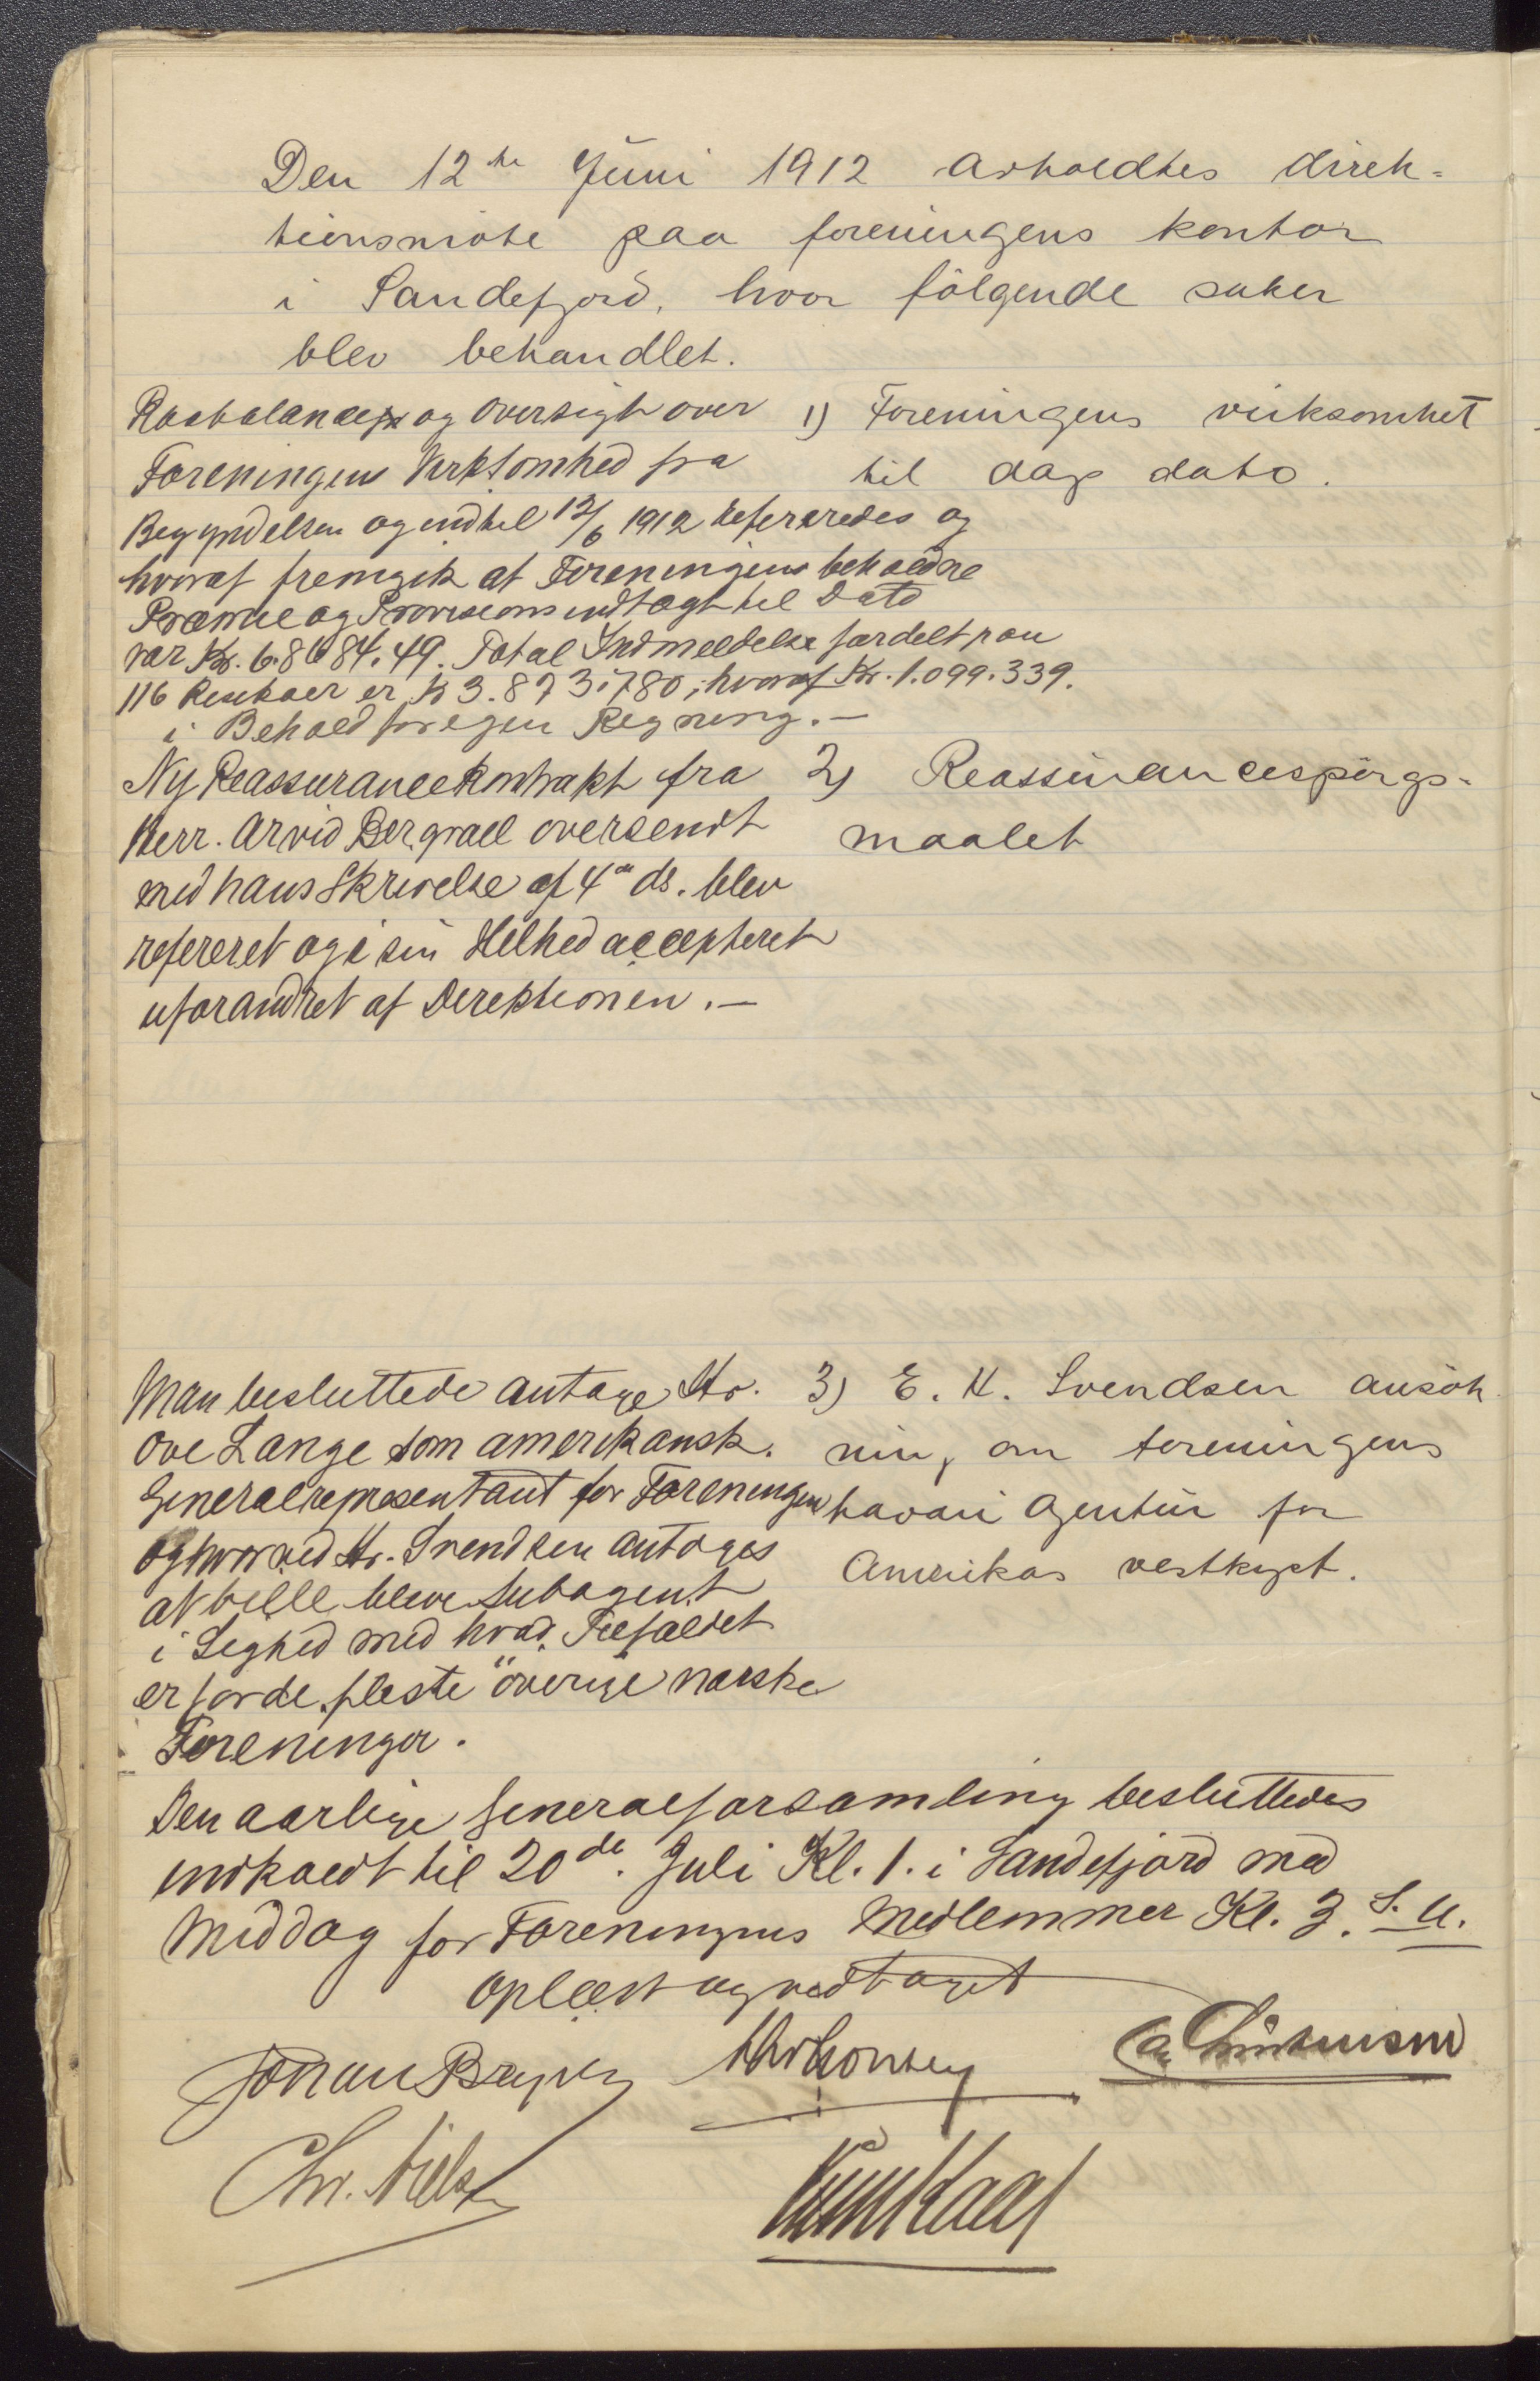 Den 12te Juni 1912 avholdtes direk-
tionsmøte paa foreningens kontor
i Sandefjord, hvor fölgende saker
blev behandlet.
1) Foreningens virksomhet
til dags dato.
Raabalance og Oversigt over
Foreningens Virksomhed fra
Begyndelsen og indtil 12/6 1912 refereredes og
hvoraf fremgik at Foreningens beholdne
Præmie og Provisions indtægt til Dato
var Kr. 6.8684.49. Total Indmeldelse fordelt paa
116 Risikoer er Kr 3.873.780, hvoraf Kr. 1.099.339.
i Behold for egen Regning.—
2) Reassurancespörgs-
maalet
Ny Reassurancekontrakt fra
Herr. Arvid Bergvall oversendt
med hans Skrivelse af 4de ds. blev
refereret og i sin Helhed accepteret
uforandret af Direktionen.—
3) E. K. Svendsen ansök
ning om foreningens
havari Agentur for
Amerikas vestkyst.
Man besluttede antage Hr.
Ove Lange som amerikansk.
Generalrepresentant for Foreningen
og hvorved Hr. Svendsen antages
at ville blive Subagent
i Lighed med hvad Tilfældet
er for de fleste överige norske
Foreninger.
Den aarlige Generalforsamling besluttedes
indkaldt til 20de. Juli Kl. 1. i Sandefjord med
Middag for Foreningens Medlemmer Kl. 3. S. U.
Oplæst og vedtaget
Johan Bryde
Chr. Nielsen